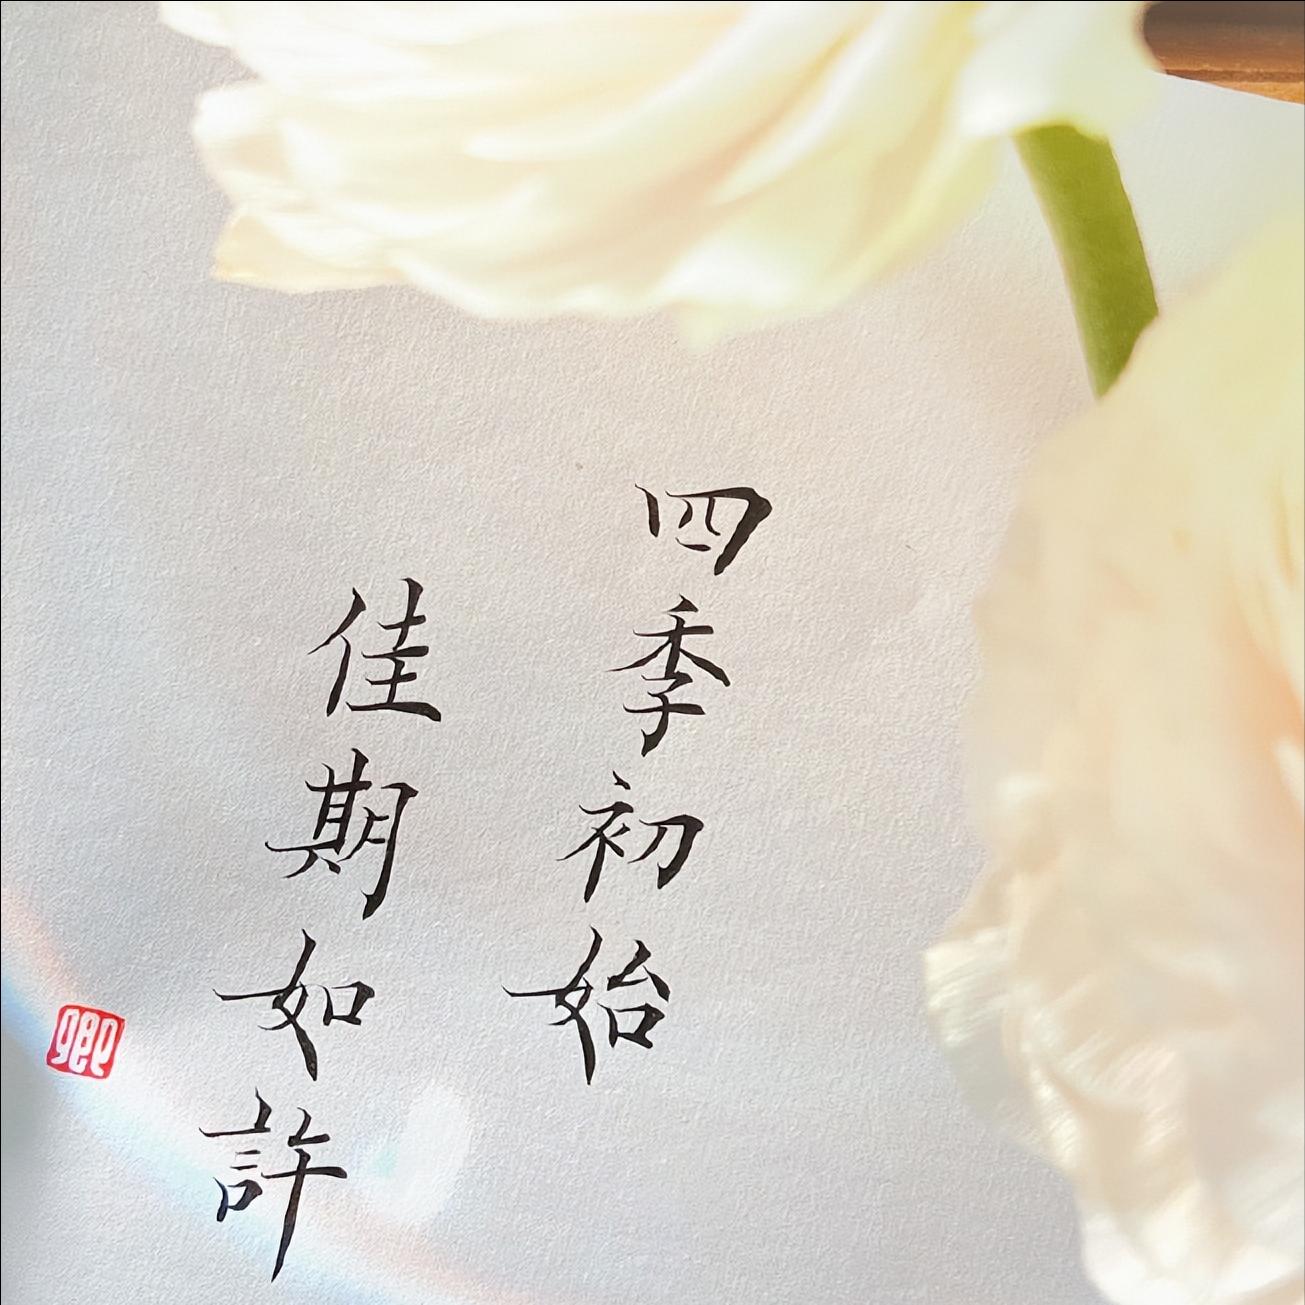 四季初始
佳期如許
卿